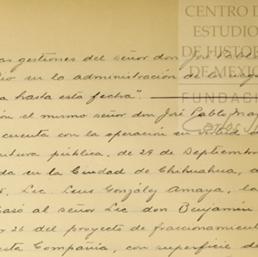 CENTRO D
ESTUDIO
DE HISTOR
DE MEXIC
FUNDACI
as gestiones del señor don José
en la administración de
a hasta esta fecha".
ón el mismo señor don José Pablo
cuenta con la operación
tura pública, de 29 de Septiembre
da en la Ciudad de Chihuahua, a
Lic. Luis González Amaya, la
asó al señor Lic don Benjamín
o 26 del proyecto de fraccionamient
esta Compañía, con superficie de